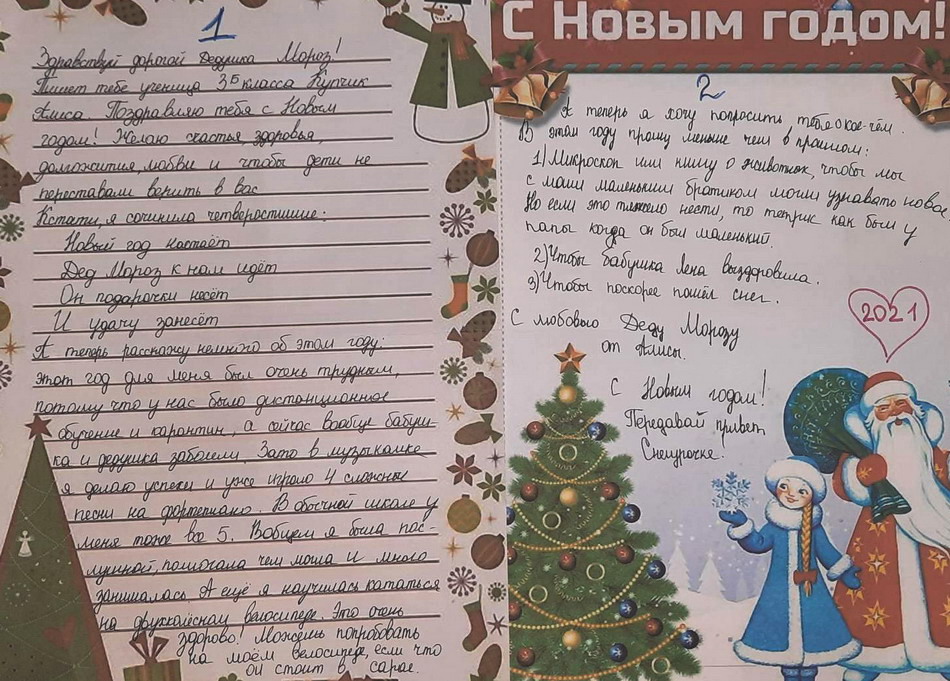 1
Здравствуй дорогой Дедушка Мороз!
Пишет тебе ученица 3Б класса Купчик
Алиса. Поздравляю тебя с Новым
годом! Желаю счастья, здоровья,
долгожития, любви и чтобы дети не
переставали верить в вас
Кстати, я сочинила четверостишие:
Новый год настаёт
Дед Мороз к нам идёт
Он подарочки несёт
И удачу занесёт
А теперь расскажу немного об этом году:
этот год для меня был очень трудным,
потому что у нас было дистанционное
обучение и карантин, а сейчас вообще бабуш-
ка и дедушка заболели. Зато в музыкалке
я делаю успехи и уже играю 4 сложные
песни на фортепиано. В обычной школе у
меня тоже все 5. Вобщем я была пос-
лушной, помогала чем могла и много
занималась А ещё я научилась кататься
на двухколёсном велосипеде. Это очень
здорово! Можешь попробовать
на моём велосипеде, если что
он стоит в сарае.
С Новым годом!
2
А теперь я хочу попросить тебя о кое-чём.
В этом году прошу меньше чем в прошлом:
1) Микроскоп или книгу о животных, чтобы мы
с моим маленьким братиком могли узнавать новое,
Но если это тяжело нести, то тетрис как был у
папы когда он был маленький.
2) Чтобы бабушка Лена выздоровила.
3) Чтобы поскорее пошёл снег.
2021
С любовью Деду Морозу
от Алисы.
С Новым годом!
Передавай привет
Снегурочке.